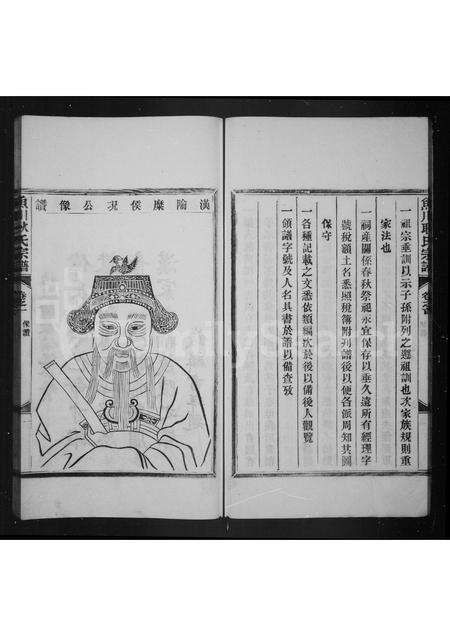 一祖宗垂訓以示子孫附列之遵祖訓也次家族規則重
家法也
一祠產關係春秋祭祀永宜保存以垂久遠所有經理字
號稅額土名悉照稅簿附列譜後以便各派周知其圖
保守
一各種記載之文悉依類編次於後以備後人觀覽
一領譜字號及人名具書於譜以備查攷
魚川耿氏宗譜
漢隃糜侯況公像讚
魚川耿氏宗譜
卷之一
像讚